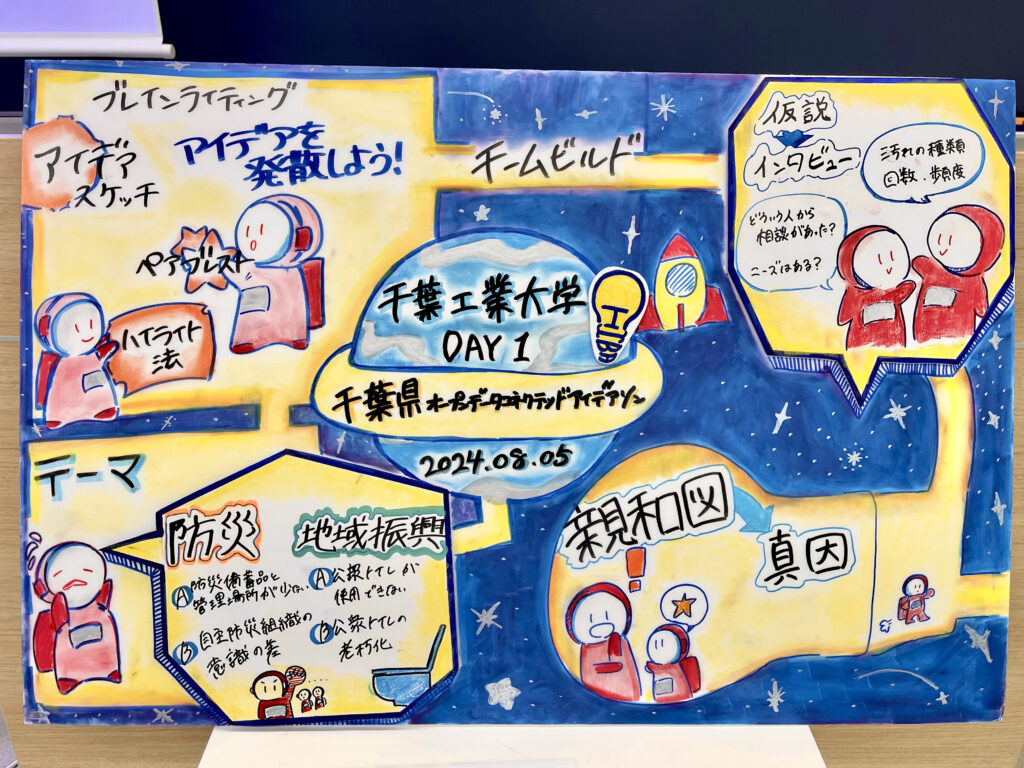 ブレインライティング
アイデア
スケッチ
アイデアを
発散しよう!
ペアブレスト
ハイライト
法
チームビルド
仮説
インタビュー
汚れの種類
回数・頻度
どういう人から
相談があった?
ニーズはある?
千葉工業大学
DAY 1
千葉県オープンデータコネクテッドアイデアソン
2024.08.05
テーマ
防災
A 防災備蓄品と
管理場所が少ない
B 自主防災組織の
意識の差
地域振興
A 公衆トイレが
使用できない
B 公衆トイレの
老朽化
親和図
真因